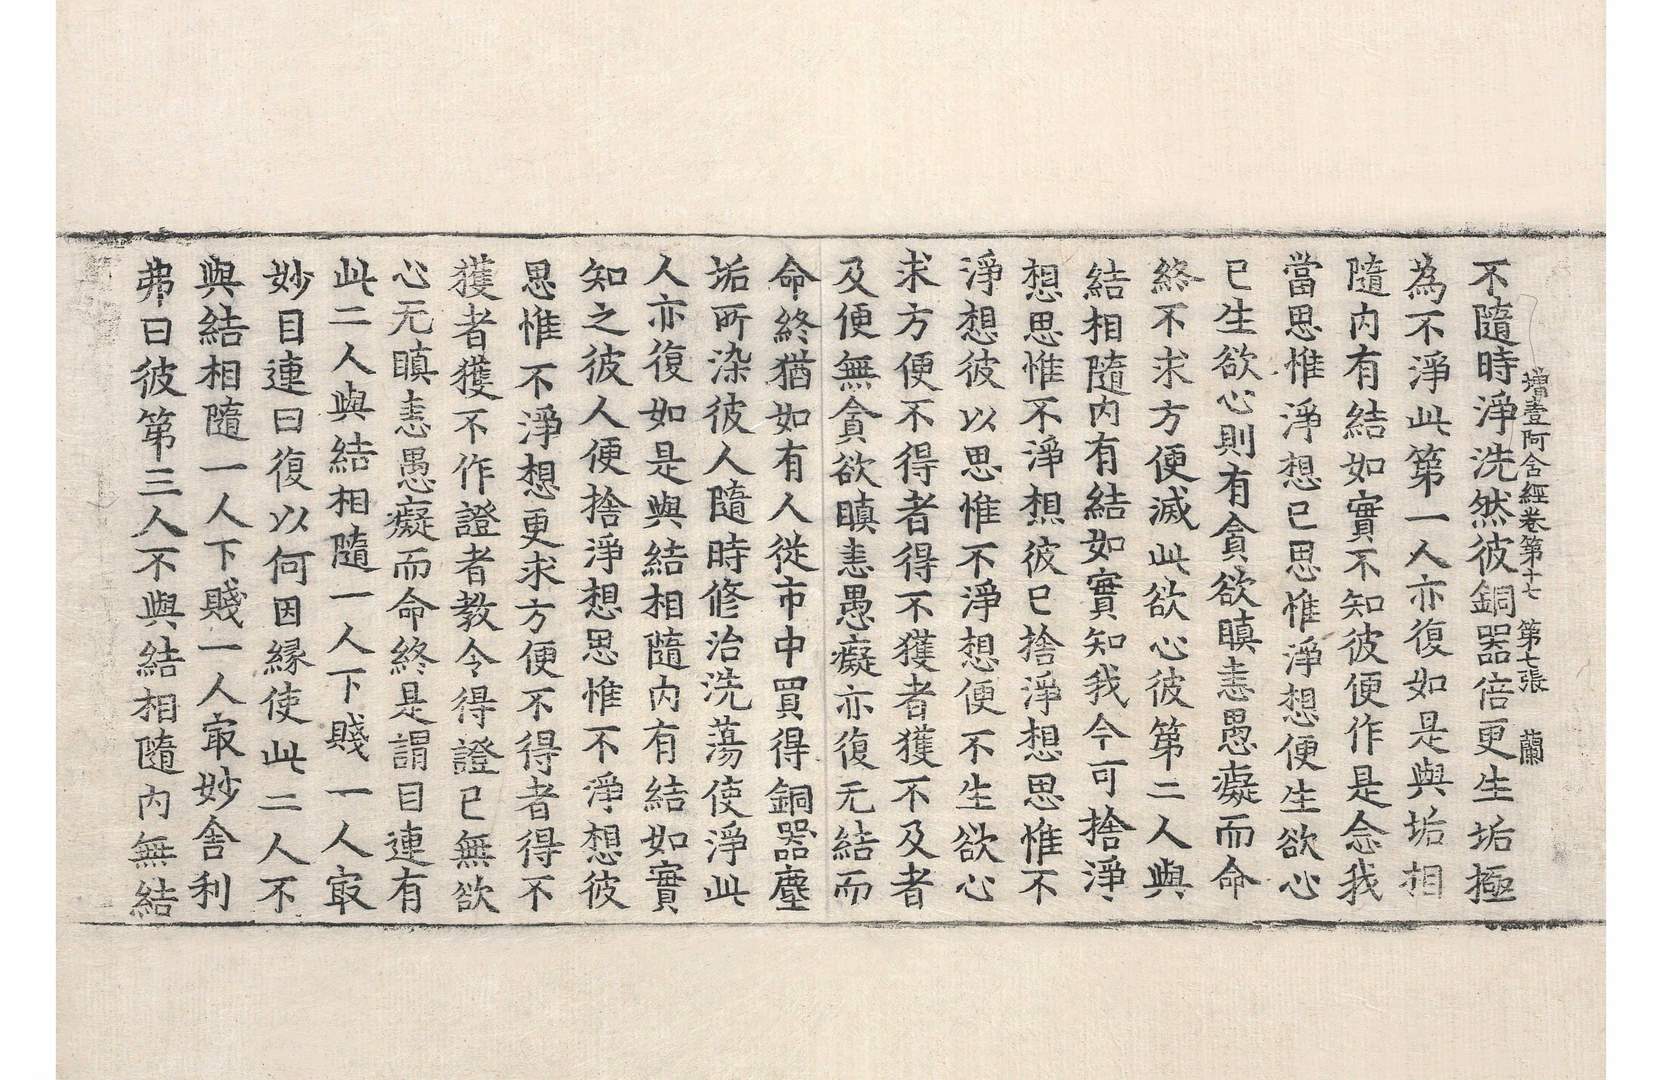 增壹阿含經卷第十七　第七張　蘭
不隨時淨洗然彼銅器倍更生垢極
為不淨此第一人亦復如是與垢相
隨内有結如實不知彼便作是念我
當思惟淨想已思惟淨想便生欲心
已生欲心則有貪欲瞋恚愚癡而命
終不求方便滅此欲心彼第二人與
結相隨内有結如實知我今可捨淨
想思惟不淨想彼已捨淨想思惟不
淨想彼以思惟不淨想便不生欲心
求方便不得者得不獲者獲不及者
及便無貪欲瞋恚愚癡亦復无結而
命終猶如有人從市中買得銅器塵
垢所染彼人隨時修治洗蕩使淨此
人亦復如是與結相隨内有結如實
知之彼人便捨淨想思惟不淨想彼
思惟不淨想更求方便不得者得不
獲者獲不作證者教令得證已無欲
心无瞋恚愚癡而命終是謂目連有
此二人與結相隨一人下賤一人㝡
妙目連曰復以何因緣使此二人不
與結相隨一人下賤一人㝡妙舍利
弗曰彼第三人不與結相隨内無結